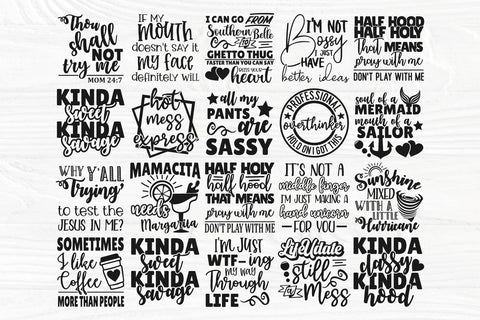 Thou
shall
NOT
try me
MOM 24:7
IF MY
MOUTH
doesn't say it
my face
definitely will
I CAN GO FROM
Southern Belle
to
GHETTO THUG
FASTER THAN YOU CAN SAY
bless your
heart
I'M NOT
Bossy
I JUST
HAVE
better ideas
HALF HOOD
HALF HOLY
That MEANS
pray with me
DON'T PLAY WITH ME
KINDA
sweet
KINDA
savage
hot
mess
express
all my
PANTS
are
SASSY
PROFESSIONAL
overthinker
HOLD ON I GOT THIS
soul of a
MERMAID
mouth of a
SAILOR
WHY Y'ALL
Trying
to test the
JESUS IN ME?
MAMACITA
needs
a
Margarita
HALF HOLY
half hood
THAT MEANS
pray with me
DON'T PLAY WITH ME
IT'S NOT A
middle finger
I'M JUST MAKING A
hand unicorn
FOR YOU
Sunshine
MIXED
WITH A
LITTLE
Hurricane
SOMETIMES
I like
Coffee
MORE THAN PEOPLE
KINDA
sweet
KINDA
savage
I'M JUST
WTF-ing
MY WAY
Through
LIFE
La Natale
still
a
Mess
KINDA
classy
KINDA
hood